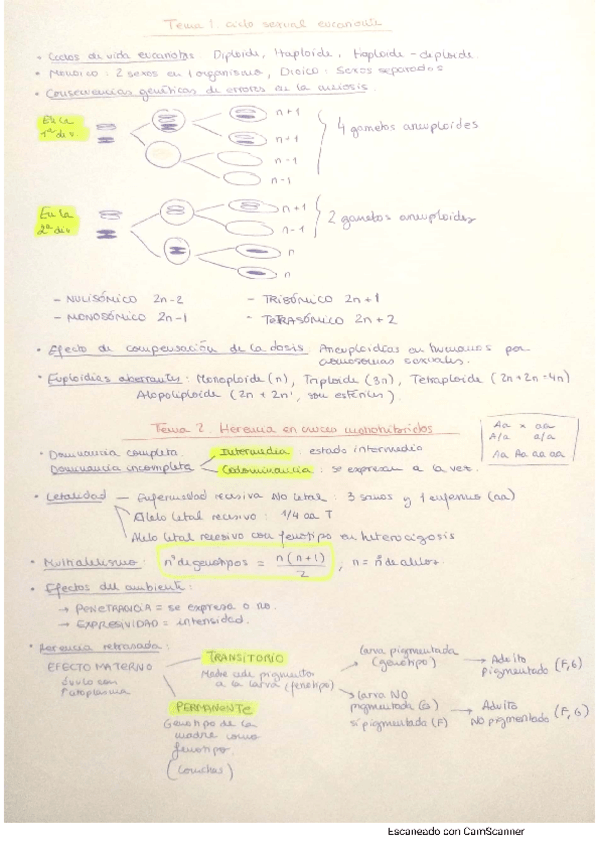 Tema 1. ciclo sexual eucarionte
• Ciclos de vida eucariotas Diploide, Haploide, haploide-diploide.
• Monoico: 2 sexos en 1 organismo, Dioico: Sexos separados
• Consecuencias genéticas de errores en la meiosis.
En la
1ª div.
n+1
n+1
n-1
n-1
4 gametos aneuploides
En la
2ª div.
n+1
n-1
n
n
2 gametos aneuploides
- NULISÓMICO 2n-2
- TRISÓMICO 2n+1
- MONOSÓMICO 2n-1
- TETRASÓMICO 2n+2
• Efecto de compensación de la dosis Aneuploidías en humanos por
cromosomas sexuales.
• Euploidías aberrantes: Monoploide (n), Triploide (3n), Tetraploide (2n+2n=4n)
Alopoliploide (2n+2n', son estériles).
Tema 2. Herencia en cruces monohíbridos
Aa x aa
A/a a/a
Aa Aa aa aa
• Dominancia completa.
Dominancia incompleta
Intermedia: estado intermedio
Codominancia: se expresan a la vez.
• Letalidad - Enfermedad recesiva No letal: 3 sanos y 1 enfermo (aa)
Alelo letal recesivo: 1/4 aa †
Alelo letal recesivo con fenotipo en heterocigosis
• Multialelismo: nº de genotipos = n(n+1)/2, n = nº de alelos.
• Efectos del ambiente:
→ PENETRANCIA = se expresa o no.
→ EXPRESIVIDAD = intensidad.
• Herencia retrasada:
EFECTO MATERNO
óvulo con
citoplasma
TRANSITORIO
Madre cede pigmento
a la larva (fenotipo)
Larva pigmentada
(genotipo)
→ Adulto
Pigmentado (F,G)
Larva NO
pigmentada (G)
sí pigmentada (F)
→ Adulto
No pigmentado (F,G)
PERMANENTE
Genotipo de la
madre como
fenotipo.
(conchas)
Escaneado con CamScanner